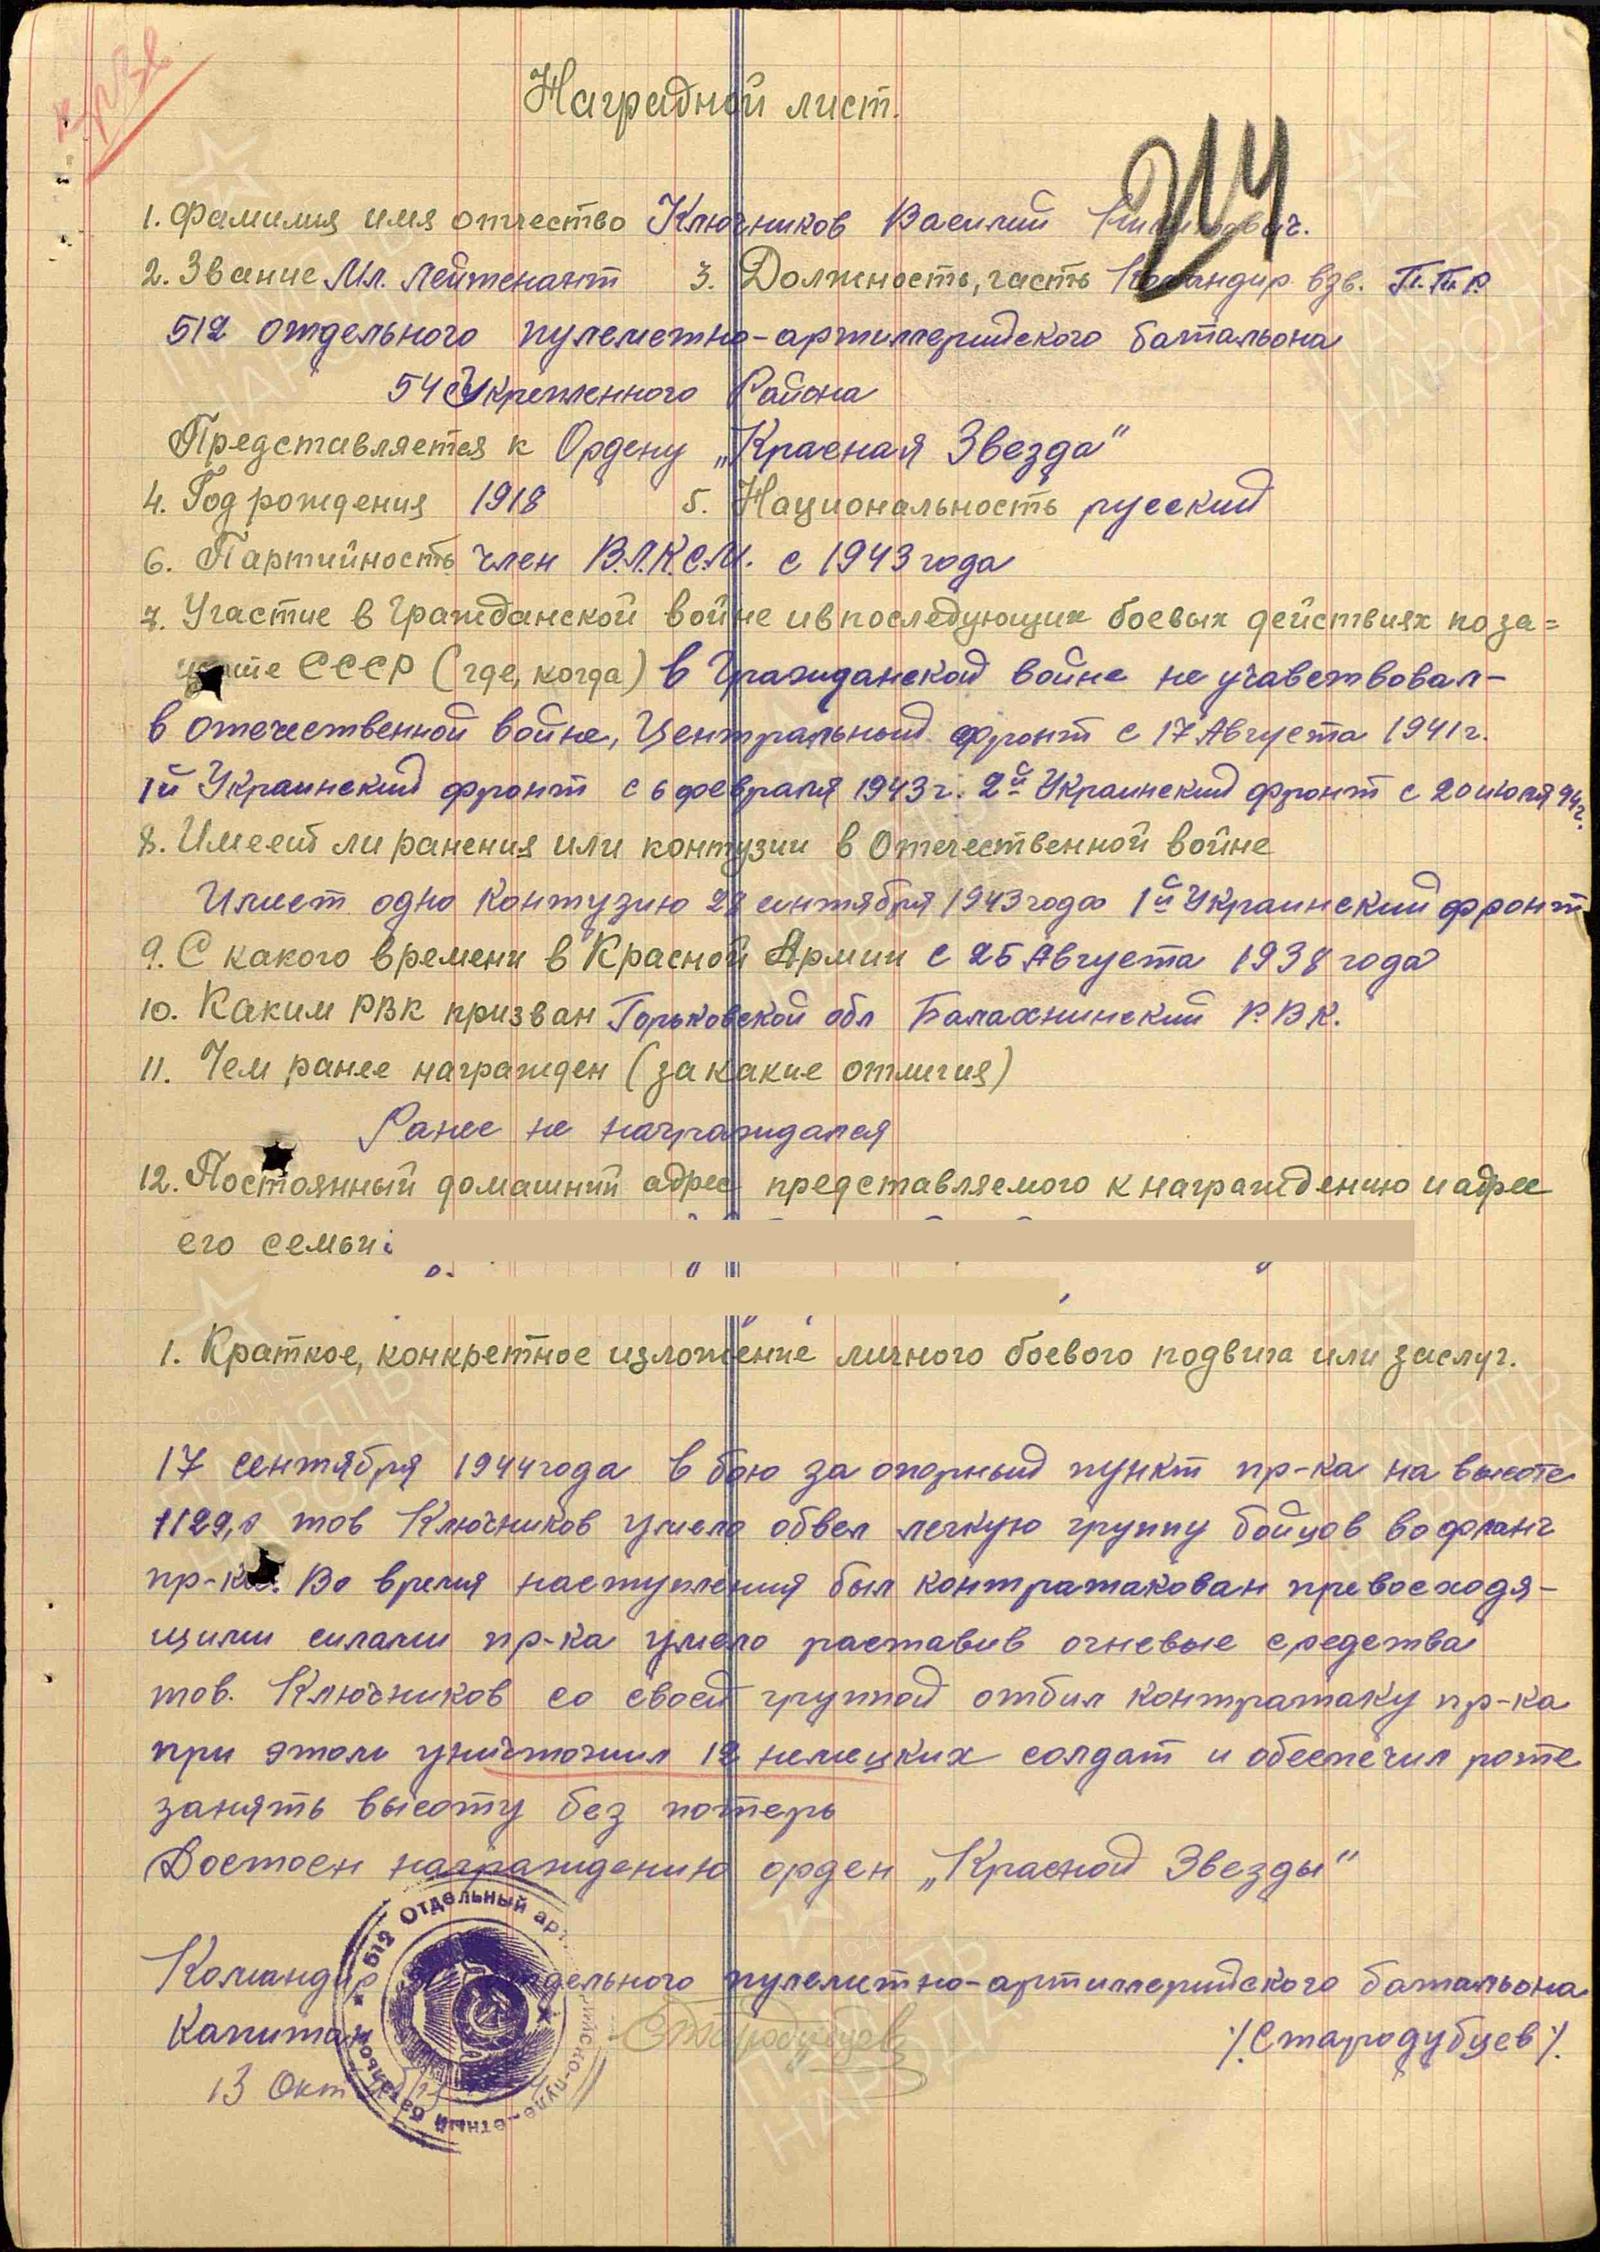 Крзв
Наградной лист.
214
1. Фамилия имя отчество Ключников Василий
2. Звание Мл. Лейтенант 3. Должность, часть Командир взв. П.Т.Р.
512 отдельного пулеметно-артиллерийского батальона
54 Укрепленного Района
Представляется к Ордену „Красная Звезда"
4. Год рождения 1918 5. Национальность русский
6. Партийность член В.Л.К.С.М. с 1943 года
7. Участие в Гражданской войне и в последующих боевых действиях по за=
щите СССР (где, когда) в Гражданской войне не учавствовал-
в отечественной войне, Центральный фронт с 17 Августа 1941 г.
1й Украинский фронт с 6 февраля 1943 г. 2й Украинский фронт с 20 июля 44 г.
8. Имеет ли ранения или контузии в Отечественной войне
Имеет одно контузию 28 сентября 1943 года 1й Украинский фронт
9. С какого времени в Красной Армии с 25 Августа 1938 года
10. Каким РВК призван Горьковской обл Балахнинский Р.В.К.
11. Чем ранее награжден (за какие отличия)
Ранее не награждался
12. Постоянный домашний адрес представляемого к награждению и адрес
его семьи:
1. Краткое, конкретное изложение личного боевого подвига или заслуг.
17 сентября 1944 года в бою за опорный пункт пр-ка на высоте
1129,0 тов Ключников умело обвел легкую группу бойцов во фланг
пр-ка. Во время наступления был контратакован превосходя-
щими силами пр-ка умело раставив огневые средства
тов. Ключников со своей группой отбил контратаку пр-ка
при этом уничтожил 12 немецких солдат и обеспечил роте
занять высоту без потерь
Достоен награждению орден „Красной Звезды"
Командир отдельного пулеметно-артиллерийского батальона
Капитан Стародубцев /.Стародубцев/.
13 Октября
512 Отдельный арт пулеметный батальон
ПАМЯТЬ НАРОДА